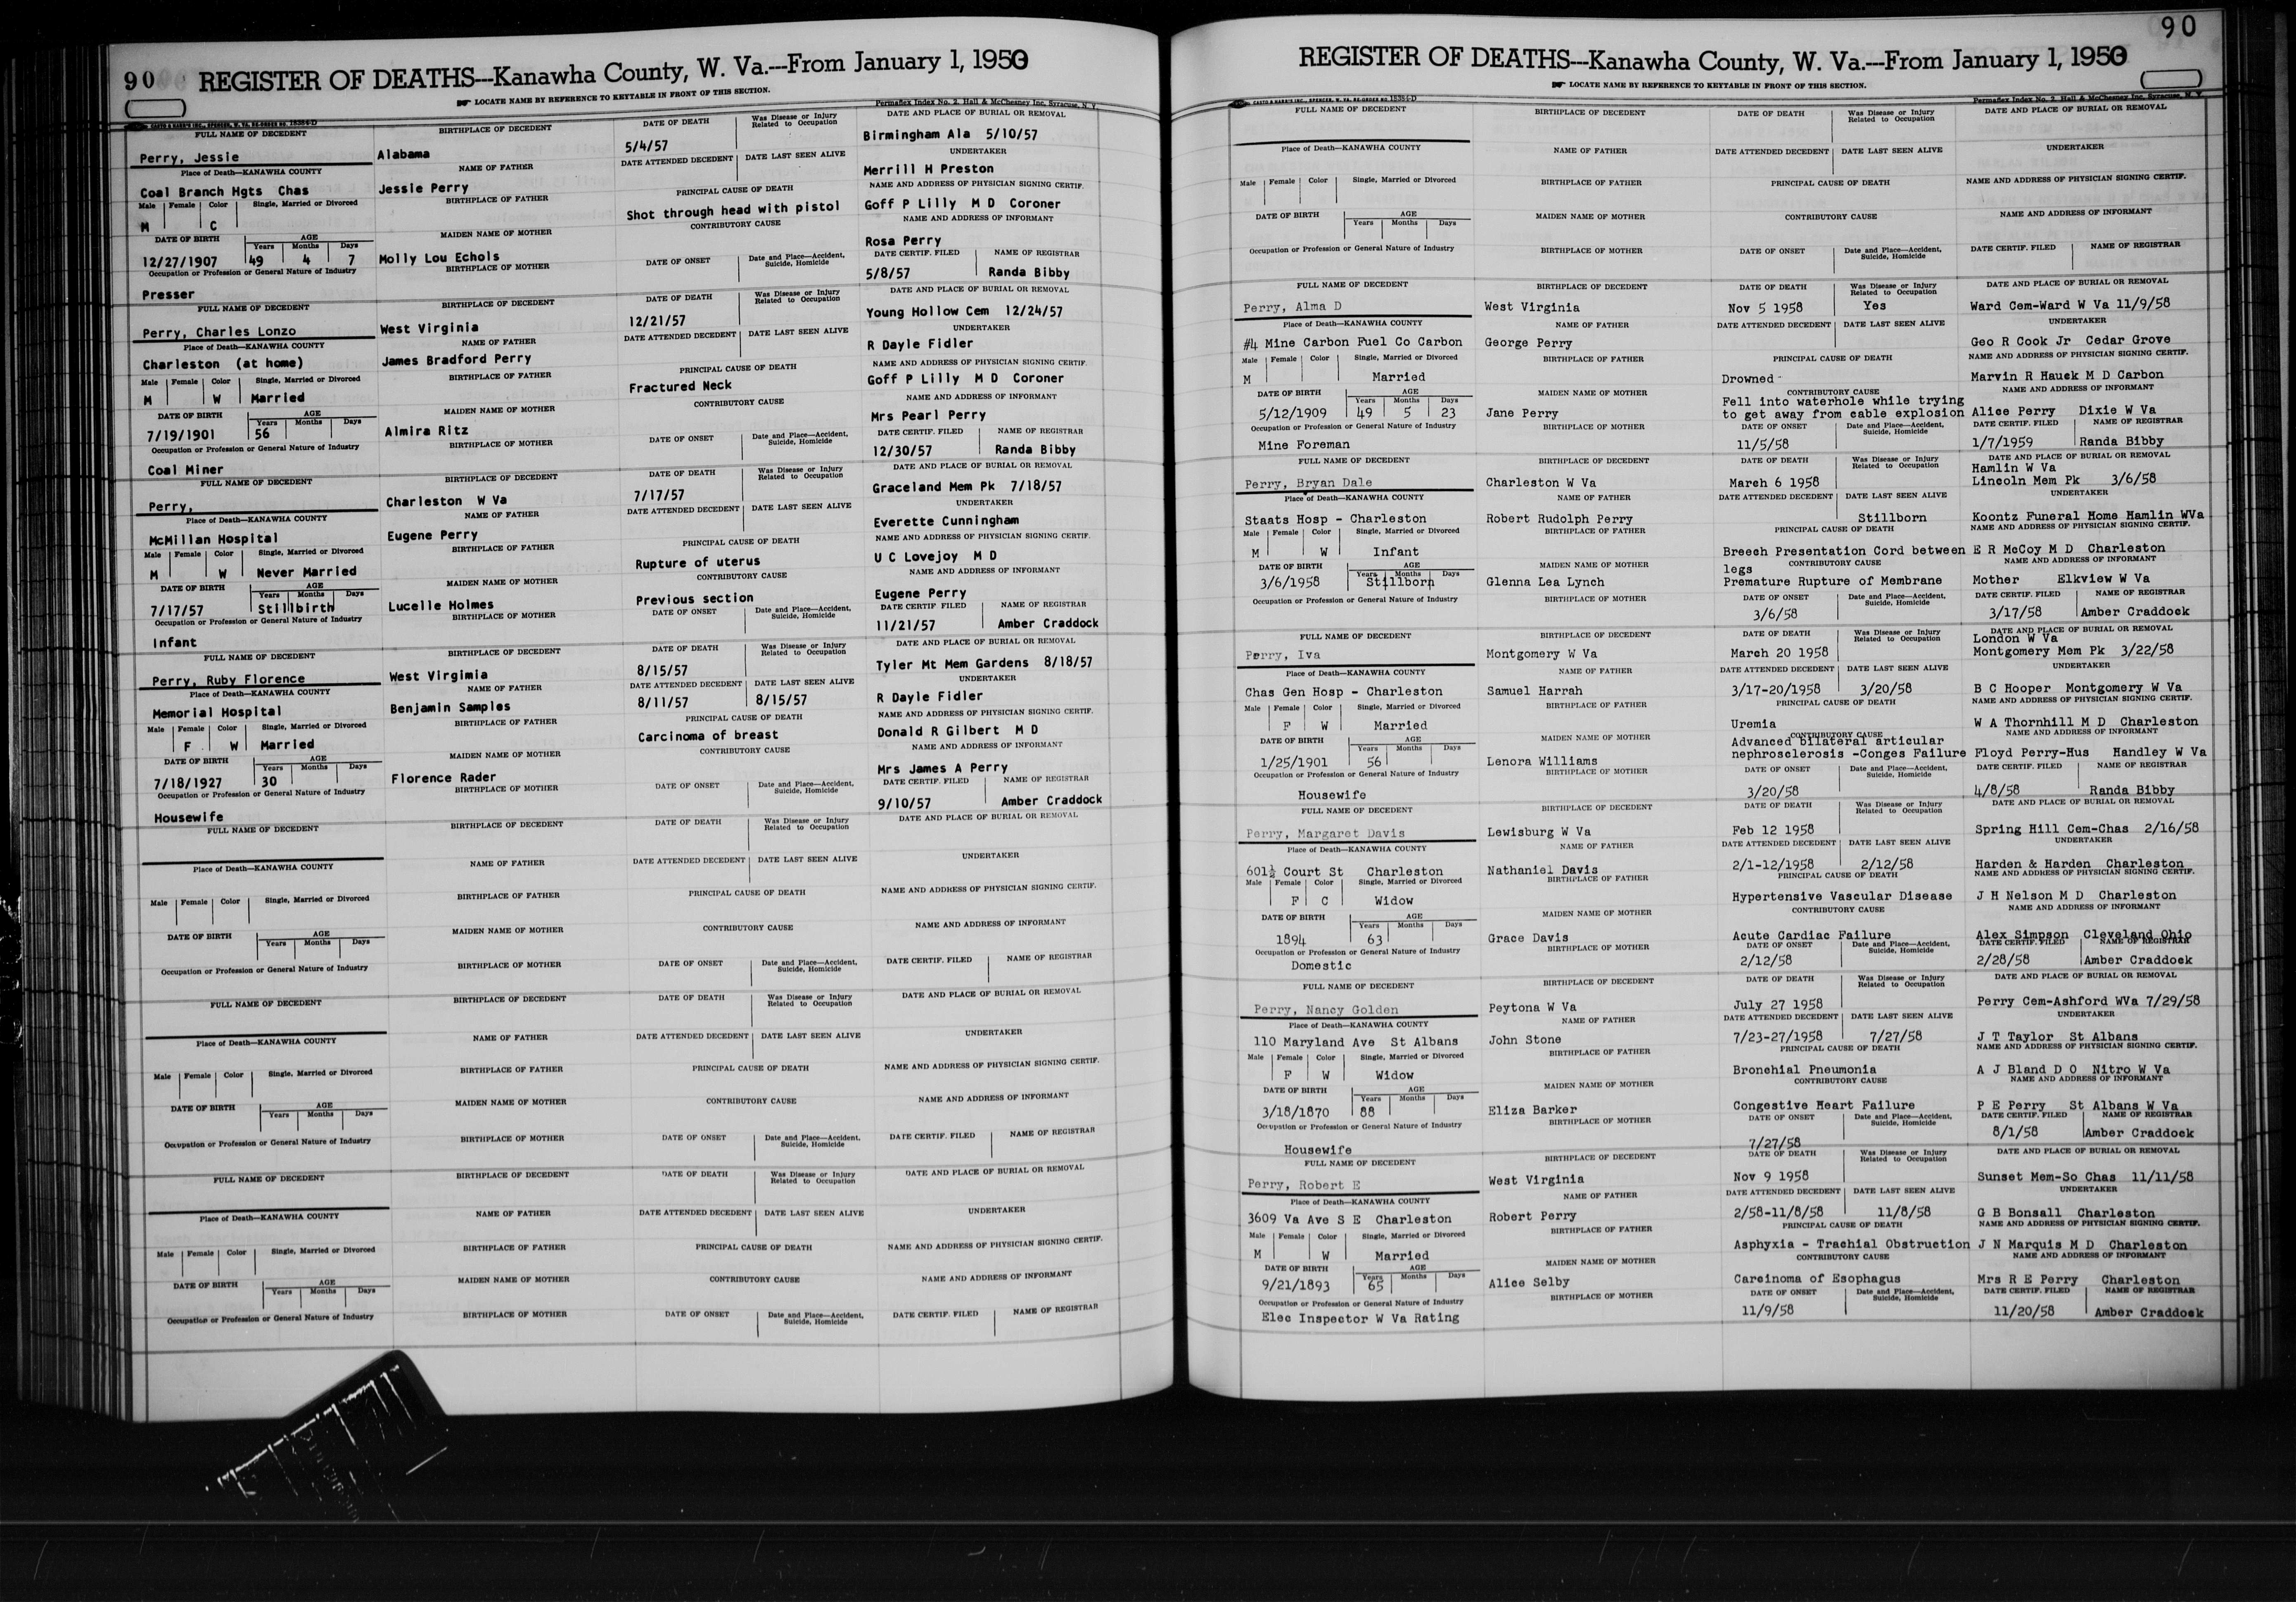 90 REGISTER OF DEATHS---Kanawha County, W. Va.---From January 1, 1950
LOCATE NAME BY REFERENCE TO KEYTABLE IN FRONT OF THIS SECTION.
CASTO & HARRIS INC., SPENCER, W. VA. RE-ORDER NO. 15384-D
Permaflex Index No. 2, Hall & McChesney Inc. Syracuse, N. Y.
FULL NAME OF DECEDENT
Perry, Jessie
Place of Death—KANAWHA COUNTY
Coal Branch Hgts Chas
Male Female Color Single, Married or Divorced
M C
DATE OF BIRTH AGE
Years Months Days
12/27/1907 49 4 7
Occupation or Profession or General Nature of Industry
Presser
BIRTHPLACE OF DECEDENT
Alabama
NAME OF FATHER
Jessie Perry
BIRTHPLACE OF FATHER
MAIDEN NAME OF MOTHER
Molly Lou Echols
BIRTHPLACE OF MOTHER
DATE OF DEATH Was Disease or Injury Related to Occupation
5/4/57
DATE ATTENDED DECEDENT DATE LAST SEEN ALIVE
PRINCIPAL CAUSE OF DEATH
Shot through head with pistol
CONTRIBUTORY CAUSE
DATE OF ONSET Date and Place—Accident, Suicide, Homicide
DATE AND PLACE OF BURIAL OR REMOVAL
Birmingham Ala 5/10/57
UNDERTAKER
Merrill H Preston
NAME AND ADDRESS OF PHYSICIAN SIGNING CERTIF.
Goff P Lilly M D Coroner
NAME AND ADDRESS OF INFORMANT
Rosa Perry
DATE CERTIF. FILED NAME OF REGISTRAR
5/8/57 Randa Bibby
FULL NAME OF DECEDENT
Perry, Charles Lonzo
Place of Death—KANAWHA COUNTY
Charleston (at home)
Male Female Color Single, Married or Divorced
M W Married
DATE OF BIRTH AGE
Years Months Days
7/19/1901 56
Occupation or Profession or General Nature of Industry
Coal Miner
BIRTHPLACE OF DECEDENT
West Virginia
NAME OF FATHER
James Bradford Perry
BIRTHPLACE OF FATHER
MAIDEN NAME OF MOTHER
Almira Ritz
BIRTHPLACE OF MOTHER
DATE OF DEATH Was Disease or Injury Related to Occupation
12/21/57
DATE ATTENDED DECEDENT DATE LAST SEEN ALIVE
PRINCIPAL CAUSE OF DEATH
Fractured Neck
CONTRIBUTORY CAUSE
DATE OF ONSET Date and Place—Accident, Suicide, Homicide
DATE AND PLACE OF BURIAL OR REMOVAL
Young Hollow Cem 12/24/57
UNDERTAKER
R Dayle Fidler
NAME AND ADDRESS OF PHYSICIAN SIGNING CERTIF.
Goff P Lilly M D Coroner
NAME AND ADDRESS OF INFORMANT
Mrs Pearl Perry
DATE CERTIF. FILED NAME OF REGISTRAR
12/30/57 Randa Bibby
FULL NAME OF DECEDENT
Perry,
Place of Death—KANAWHA COUNTY
McMillan Hospital
Male Female Color Single, Married or Divorced
M W Never Married
DATE OF BIRTH AGE
Years Months Days
7/17/57 Stillbirth
Occupation or Profession or General Nature of Industry
Infant
BIRTHPLACE OF DECEDENT
Charleston W Va
NAME OF FATHER
Eugene Perry
BIRTHPLACE OF FATHER
MAIDEN NAME OF MOTHER
Lucelle Holmes
BIRTHPLACE OF MOTHER
DATE OF DEATH Was Disease or Injury Related to Occupation
7/17/57
DATE ATTENDED DECEDENT DATE LAST SEEN ALIVE
PRINCIPAL CAUSE OF DEATH
Rupture of uterus
CONTRIBUTORY CAUSE
Previous section
DATE OF ONSET Date and Place—Accident, Suicide, Homicide
DATE AND PLACE OF BURIAL OR REMOVAL
Graceland Mem Pk 7/18/57
UNDERTAKER
Everette Cunningham
NAME AND ADDRESS OF PHYSICIAN SIGNING CERTIF.
U C Lovejoy M D
NAME AND ADDRESS OF INFORMANT
Eugene Perry
DATE CERTIF. FILED NAME OF REGISTRAR
11/21/57 Amber Craddock
FULL NAME OF DECEDENT
Perry, Ruby Florence
Place of Death—KANAWHA COUNTY
Memorial Hospital
Male Female Color Single, Married or Divorced
F W Married
DATE OF BIRTH AGE
Years Months Days
7/18/1927 30
Occupation or Profession or General Nature of Industry
Housewife
BIRTHPLACE OF DECEDENT
West Virgimia
NAME OF FATHER
Benjamin Samples
BIRTHPLACE OF FATHER
MAIDEN NAME OF MOTHER
Florence Rader
BIRTHPLACE OF MOTHER
DATE OF DEATH Was Disease or Injury Related to Occupation
8/15/57
DATE ATTENDED DECEDENT DATE LAST SEEN ALIVE
8/11/57 8/15/57
PRINCIPAL CAUSE OF DEATH
Carcinoma of breast
CONTRIBUTORY CAUSE
DATE OF ONSET Date and Place—Accident, Suicide, Homicide
DATE AND PLACE OF BURIAL OR REMOVAL
Tyler Mt Mem Gardens 8/18/57
UNDERTAKER
R Dayle Fidler
NAME AND ADDRESS OF PHYSICIAN SIGNING CERTIF.
Donald R Gilbert M D
NAME AND ADDRESS OF INFORMANT
Mrs James A Perry
DATE CERTIF. FILED NAME OF REGISTRAR
9/10/57 Amber Craddock
FULL NAME OF DECEDENT
Place of Death—KANAWHA COUNTY
Male Female Color Single, Married or Divorced
DATE OF BIRTH AGE
Years Months Days
Occupation or Profession or General Nature of Industry
BIRTHPLACE OF DECEDENT
NAME OF FATHER
BIRTHPLACE OF FATHER
MAIDEN NAME OF MOTHER
BIRTHPLACE OF MOTHER
DATE OF DEATH Was Disease or Injury Related to Occupation
DATE ATTENDED DECEDENT DATE LAST SEEN ALIVE
PRINCIPAL CAUSE OF DEATH
CONTRIBUTORY CAUSE
DATE OF ONSET Date and Place—Accident, Suicide, Homicide
DATE AND PLACE OF BURIAL OR REMOVAL
UNDERTAKER
NAME AND ADDRESS OF PHYSICIAN SIGNING CERTIF.
NAME AND ADDRESS OF INFORMANT
DATE CERTIF. FILED NAME OF REGISTRAR
FULL NAME OF DECEDENT
Place of Death—KANAWHA COUNTY
Male Female Color Single, Married or Divorced
DATE OF BIRTH AGE
Years Months Days
Occupation or Profession or General Nature of Industry
BIRTHPLACE OF DECEDENT
NAME OF FATHER
BIRTHPLACE OF FATHER
MAIDEN NAME OF MOTHER
BIRTHPLACE OF MOTHER
DATE OF DEATH Was Disease or Injury Related to Occupation
DATE ATTENDED DECEDENT DATE LAST SEEN ALIVE
PRINCIPAL CAUSE OF DEATH
CONTRIBUTORY CAUSE
DATE OF ONSET Date and Place—Accident, Suicide, Homicide
DATE AND PLACE OF BURIAL OR REMOVAL
UNDERTAKER
NAME AND ADDRESS OF PHYSICIAN SIGNING CERTIF.
NAME AND ADDRESS OF INFORMANT
DATE CERTIF. FILED NAME OF REGISTRAR
FULL NAME OF DECEDENT
Place of Death—KANAWHA COUNTY
Male Female Color Single, Married or Divorced
DATE OF BIRTH AGE
Years Months Days
Occupation or Profession or General Nature of Industry
BIRTHPLACE OF DECEDENT
NAME OF FATHER
BIRTHPLACE OF FATHER
MAIDEN NAME OF MOTHER
BIRTHPLACE OF MOTHER
DATE OF DEATH Was Disease or Injury Related to Occupation
DATE ATTENDED DECEDENT DATE LAST SEEN ALIVE
PRINCIPAL CAUSE OF DEATH
CONTRIBUTORY CAUSE
DATE OF ONSET Date and Place—Accident, Suicide, Homicide
DATE AND PLACE OF BURIAL OR REMOVAL
UNDERTAKER
NAME AND ADDRESS OF PHYSICIAN SIGNING CERTIF.
NAME AND ADDRESS OF INFORMANT
DATE CERTIF. FILED NAME OF REGISTRAR
90
REGISTER OF DEATHS---Kanawha County, W. Va.---From January 1, 1950
LOCATE NAME BY REFERENCE TO KEYTABLE IN FRONT OF THIS SECTION.
CASTO & HARRIS INC., SPENCER, W. VA. RE-ORDER NO. 15384-D
Permaflex Index No. 2, Hall & McChesney Inc. Syracuse, N. Y.
FULL NAME OF DECEDENT
Place of Death—KANAWHA COUNTY
Male Female Color Single, Married or Divorced
DATE OF BIRTH AGE
Years Months Days
Occupation or Profession or General Nature of Industry
BIRTHPLACE OF DECEDENT
NAME OF FATHER
BIRTHPLACE OF FATHER
MAIDEN NAME OF MOTHER
BIRTHPLACE OF MOTHER
DATE OF DEATH Was Disease or Injury Related to Occupation
DATE ATTENDED DECEDENT DATE LAST SEEN ALIVE
PRINCIPAL CAUSE OF DEATH
CONTRIBUTORY CAUSE
DATE OF ONSET Date and Place—Accident, Suicide, Homicide
DATE AND PLACE OF BURIAL OR REMOVAL
UNDERTAKER
NAME AND ADDRESS OF PHYSICIAN SIGNING CERTIF.
NAME AND ADDRESS OF INFORMANT
DATE CERTIF. FILED NAME OF REGISTRAR
FULL NAME OF DECEDENT
Perry, Alma D
Place of Death—KANAWHA COUNTY
#4 Mine Carbon Fuel Co Carbon
Male Female Color Single, Married or Divorced
M Married
DATE OF BIRTH AGE
Years Months Days
5/12/1909 49 5 23
Occupation or Profession or General Nature of Industry
Mine Foreman
BIRTHPLACE OF DECEDENT
West Virginia
NAME OF FATHER
George Perry
BIRTHPLACE OF FATHER
MAIDEN NAME OF MOTHER
Jane Perry
BIRTHPLACE OF MOTHER
DATE OF DEATH Was Disease or Injury Related to Occupation
Nov 5 1958 Yes
DATE ATTENDED DECEDENT DATE LAST SEEN ALIVE
PRINCIPAL CAUSE OF DEATH
Drowned
CONTRIBUTORY CAUSE
Fell into waterhole while trying
to get away from cable explosion
DATE OF ONSET Date and Place—Accident, Suicide, Homicide
11/5/58
DATE AND PLACE OF BURIAL OR REMOVAL
Ward Cem-Ward W Va 11/9/58
UNDERTAKER
Geo R Cook Jr Cedar Grove
NAME AND ADDRESS OF PHYSICIAN SIGNING CERTIF.
Marvin R Hauck M D Carbon
NAME AND ADDRESS OF INFORMANT
Alice Perry Dixie W Va
DATE CERTIF. FILED NAME OF REGISTRAR
1/7/1959 Randa Bibby
FULL NAME OF DECEDENT
Perry, Bryan Dale
Place of Death—KANAWHA COUNTY
Staats Hosp - Charleston
Male Female Color Single, Married or Divorced
M W Infant
DATE OF BIRTH AGE
Years Months Days
3/6/1958 Stillborn
Occupation or Profession or General Nature of Industry
BIRTHPLACE OF DECEDENT
Charleston W Va
NAME OF FATHER
Robert Rudolph Perry
BIRTHPLACE OF FATHER
MAIDEN NAME OF MOTHER
Glenna Lea Lynch
BIRTHPLACE OF MOTHER
DATE OF DEATH Was Disease or Injury Related to Occupation
March 6 1958
DATE ATTENDED DECEDENT DATE LAST SEEN ALIVE
Stillborn
PRINCIPAL CAUSE OF DEATH
Breech Presentation Cord between
legs
CONTRIBUTORY CAUSE
Premature Rupture of Membrane
DATE OF ONSET Date and Place—Accident, Suicide, Homicide
3/6/58
DATE AND PLACE OF BURIAL OR REMOVAL
Hamlin W Va
Lincoln Mem Pk 3/6/58
UNDERTAKER
Koontz Funeral Home Hamlin WVa
NAME AND ADDRESS OF PHYSICIAN SIGNING CERTIF.
E R McCoy M D Charleston
NAME AND ADDRESS OF INFORMANT
Mother Elkview W Va
DATE CERTIF. FILED NAME OF REGISTRAR
3/17/58 Amber Craddock
FULL NAME OF DECEDENT
Perry, Iva
Place of Death—KANAWHA COUNTY
Chas Gen Hosp - Charleston
Male Female Color Single, Married or Divorced
F W Married
DATE OF BIRTH AGE
Years Months Days
1/25/1901 56
Occupation or Profession or General Nature of Industry
Housewife
BIRTHPLACE OF DECEDENT
Montgomery W Va
NAME OF FATHER
Samuel Harrah
BIRTHPLACE OF FATHER
MAIDEN NAME OF MOTHER
Lenora Williams
BIRTHPLACE OF MOTHER
DATE OF DEATH Was Disease or Injury Related to Occupation
March 20 1958
DATE ATTENDED DECEDENT DATE LAST SEEN ALIVE
3/17-20/1958 3/20/58
PRINCIPAL CAUSE OF DEATH
Uremia
CONTRIBUTORY CAUSE
Advanced bilateral articular
nephrosclerosis -Conges Failure
DATE OF ONSET Date and Place—Accident, Suicide, Homicide
3/20/58
DATE AND PLACE OF BURIAL OR REMOVAL
London W Va
Montgomery Mem Pk 3/22/58
UNDERTAKER
B C Hooper Montgomery W Va
NAME AND ADDRESS OF PHYSICIAN SIGNING CERTIF.
W A Thornhill M D Charleston
NAME AND ADDRESS OF INFORMANT
Floyd Perry-Hus Handley W Va
DATE CERTIF. FILED NAME OF REGISTRAR
4/8/58 Randa Bibby
FULL NAME OF DECEDENT
Perry, Margaret Davis
Place of Death—KANAWHA COUNTY
601½ Court St Charleston
Male Female Color Single, Married or Divorced
F C Widow
DATE OF BIRTH AGE
Years Months Days
1894 63
Occupation or Profession or General Nature of Industry
Domestic
BIRTHPLACE OF DECEDENT
Lewisburg W Va
NAME OF FATHER
Nathaniel Davis
BIRTHPLACE OF FATHER
MAIDEN NAME OF MOTHER
Grace Davis
BIRTHPLACE OF MOTHER
DATE OF DEATH Was Disease or Injury Related to Occupation
Feb 12 1958
DATE ATTENDED DECEDENT DATE LAST SEEN ALIVE
2/1-12/1958 2/12/58
PRINCIPAL CAUSE OF DEATH
Hypertensive Vascular Disease
CONTRIBUTORY CAUSE
Acute Cardiac Failure
DATE OF ONSET Date and Place—Accident, Suicide, Homicide
2/12/58
DATE AND PLACE OF BURIAL OR REMOVAL
Spring Hill Cem-Chas 2/16/58
UNDERTAKER
Harden & Harden Charleston
NAME AND ADDRESS OF PHYSICIAN SIGNING CERTIF.
J H Nelson M D Charleston
NAME AND ADDRESS OF INFORMANT
Alex Simpson Cleveland Ohio
DATE CERTIF. FILED NAME OF REGISTRAR
2/28/58 Amber Craddock
FULL NAME OF DECEDENT
Perry, Nancy Golden
Place of Death—KANAWHA COUNTY
110 Maryland Ave St Albans
Male Female Color Single, Married or Divorced
F W Widow
DATE OF BIRTH AGE
Years Months Days
3/18/1870 88
Occupation or Profession or General Nature of Industry
Housewife
BIRTHPLACE OF DECEDENT
Peytona W Va
NAME OF FATHER
John Stone
BIRTHPLACE OF FATHER
MAIDEN NAME OF MOTHER
Eliza Barker
BIRTHPLACE OF MOTHER
DATE OF DEATH Was Disease or Injury Related to Occupation
July 27 1958
DATE ATTENDED DECEDENT DATE LAST SEEN ALIVE
7/23-27/1958 7/27/58
PRINCIPAL CAUSE OF DEATH
Bronchial Pneumonia
CONTRIBUTORY CAUSE
Congestive Heart Failure
DATE OF ONSET Date and Place—Accident, Suicide, Homicide
7/27/58
DATE AND PLACE OF BURIAL OR REMOVAL
Perry Cem-Ashford WVa 7/29/58
UNDERTAKER
J T Taylor St Albans
NAME AND ADDRESS OF PHYSICIAN SIGNING CERTIF.
A J Bland D O Nitro W Va
NAME AND ADDRESS OF INFORMANT
P E Perry St Albans W Va
DATE CERTIF. FILED NAME OF REGISTRAR
8/1/58 Amber Craddock
FULL NAME OF DECEDENT
Perry, Robert E
Place of Death—KANAWHA COUNTY
3609 Va Ave S E Charleston
Male Female Color Single, Married or Divorced
M W Married
DATE OF BIRTH AGE
Years Months Days
9/21/1893 65
Occupation or Profession or General Nature of Industry
Elec Inspector W Va Rating
BIRTHPLACE OF DECEDENT
West Virginia
NAME OF FATHER
Robert Perry
BIRTHPLACE OF FATHER
MAIDEN NAME OF MOTHER
Alice Selby
BIRTHPLACE OF MOTHER
DATE OF DEATH Was Disease or Injury Related to Occupation
Nov 9 1958
DATE ATTENDED DECEDENT DATE LAST SEEN ALIVE
2/58-11/8/58 11/8/58
PRINCIPAL CAUSE OF DEATH
Asphyxia - Trachial Obstruction
CONTRIBUTORY CAUSE
Carcinoma of Esophagus
DATE OF ONSET Date and Place—Accident, Suicide, Homicide
11/9/58
DATE AND PLACE OF BURIAL OR REMOVAL
Sunset Mem-So Chas 11/11/58
UNDERTAKER
G B Bonsall Charleston
NAME AND ADDRESS OF PHYSICIAN SIGNING CERTIF.
J N Marquis M D Charleston
NAME AND ADDRESS OF INFORMANT
Mrs R E Perry Charleston
DATE CERTIF. FILED NAME OF REGISTRAR
11/20/58 Amber Craddock